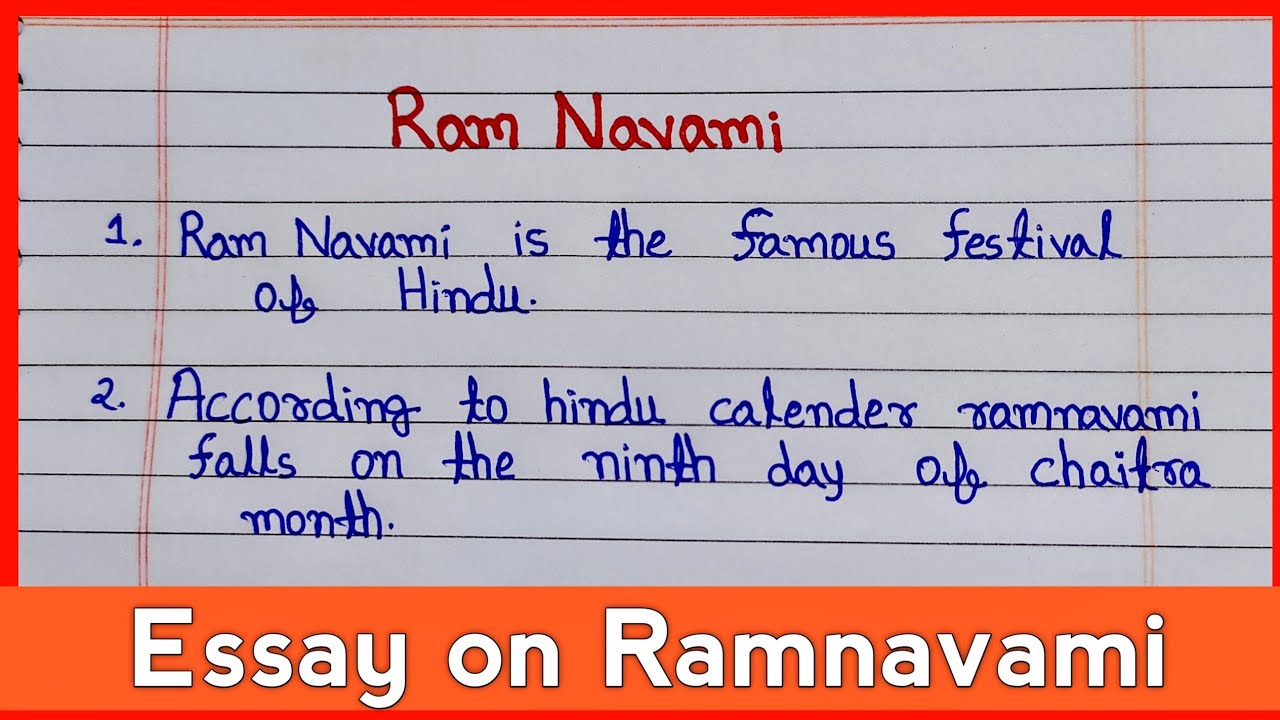 Ram Navami
1. Ram Navami is the famous festival
of Hindu.
2. According to hindu calender ramnavami
falls on the ninth day of chaitra
month.
Essay on Ramnavami